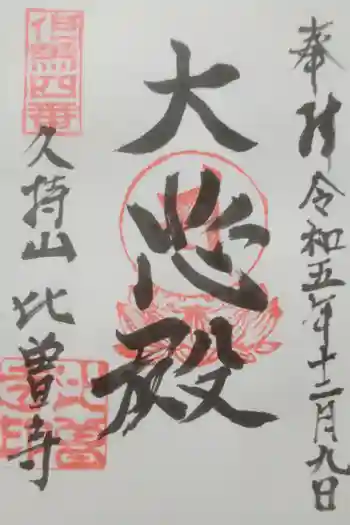 奉拝 令和五年十二月九日
大悲殿
久持山 比曽寺